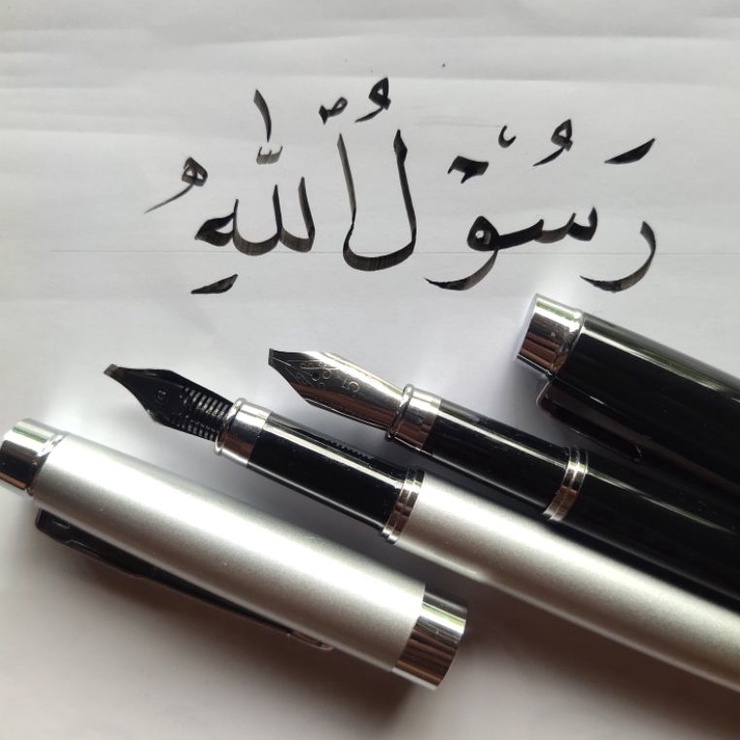 رَسُوْلُ اللّٰهِ